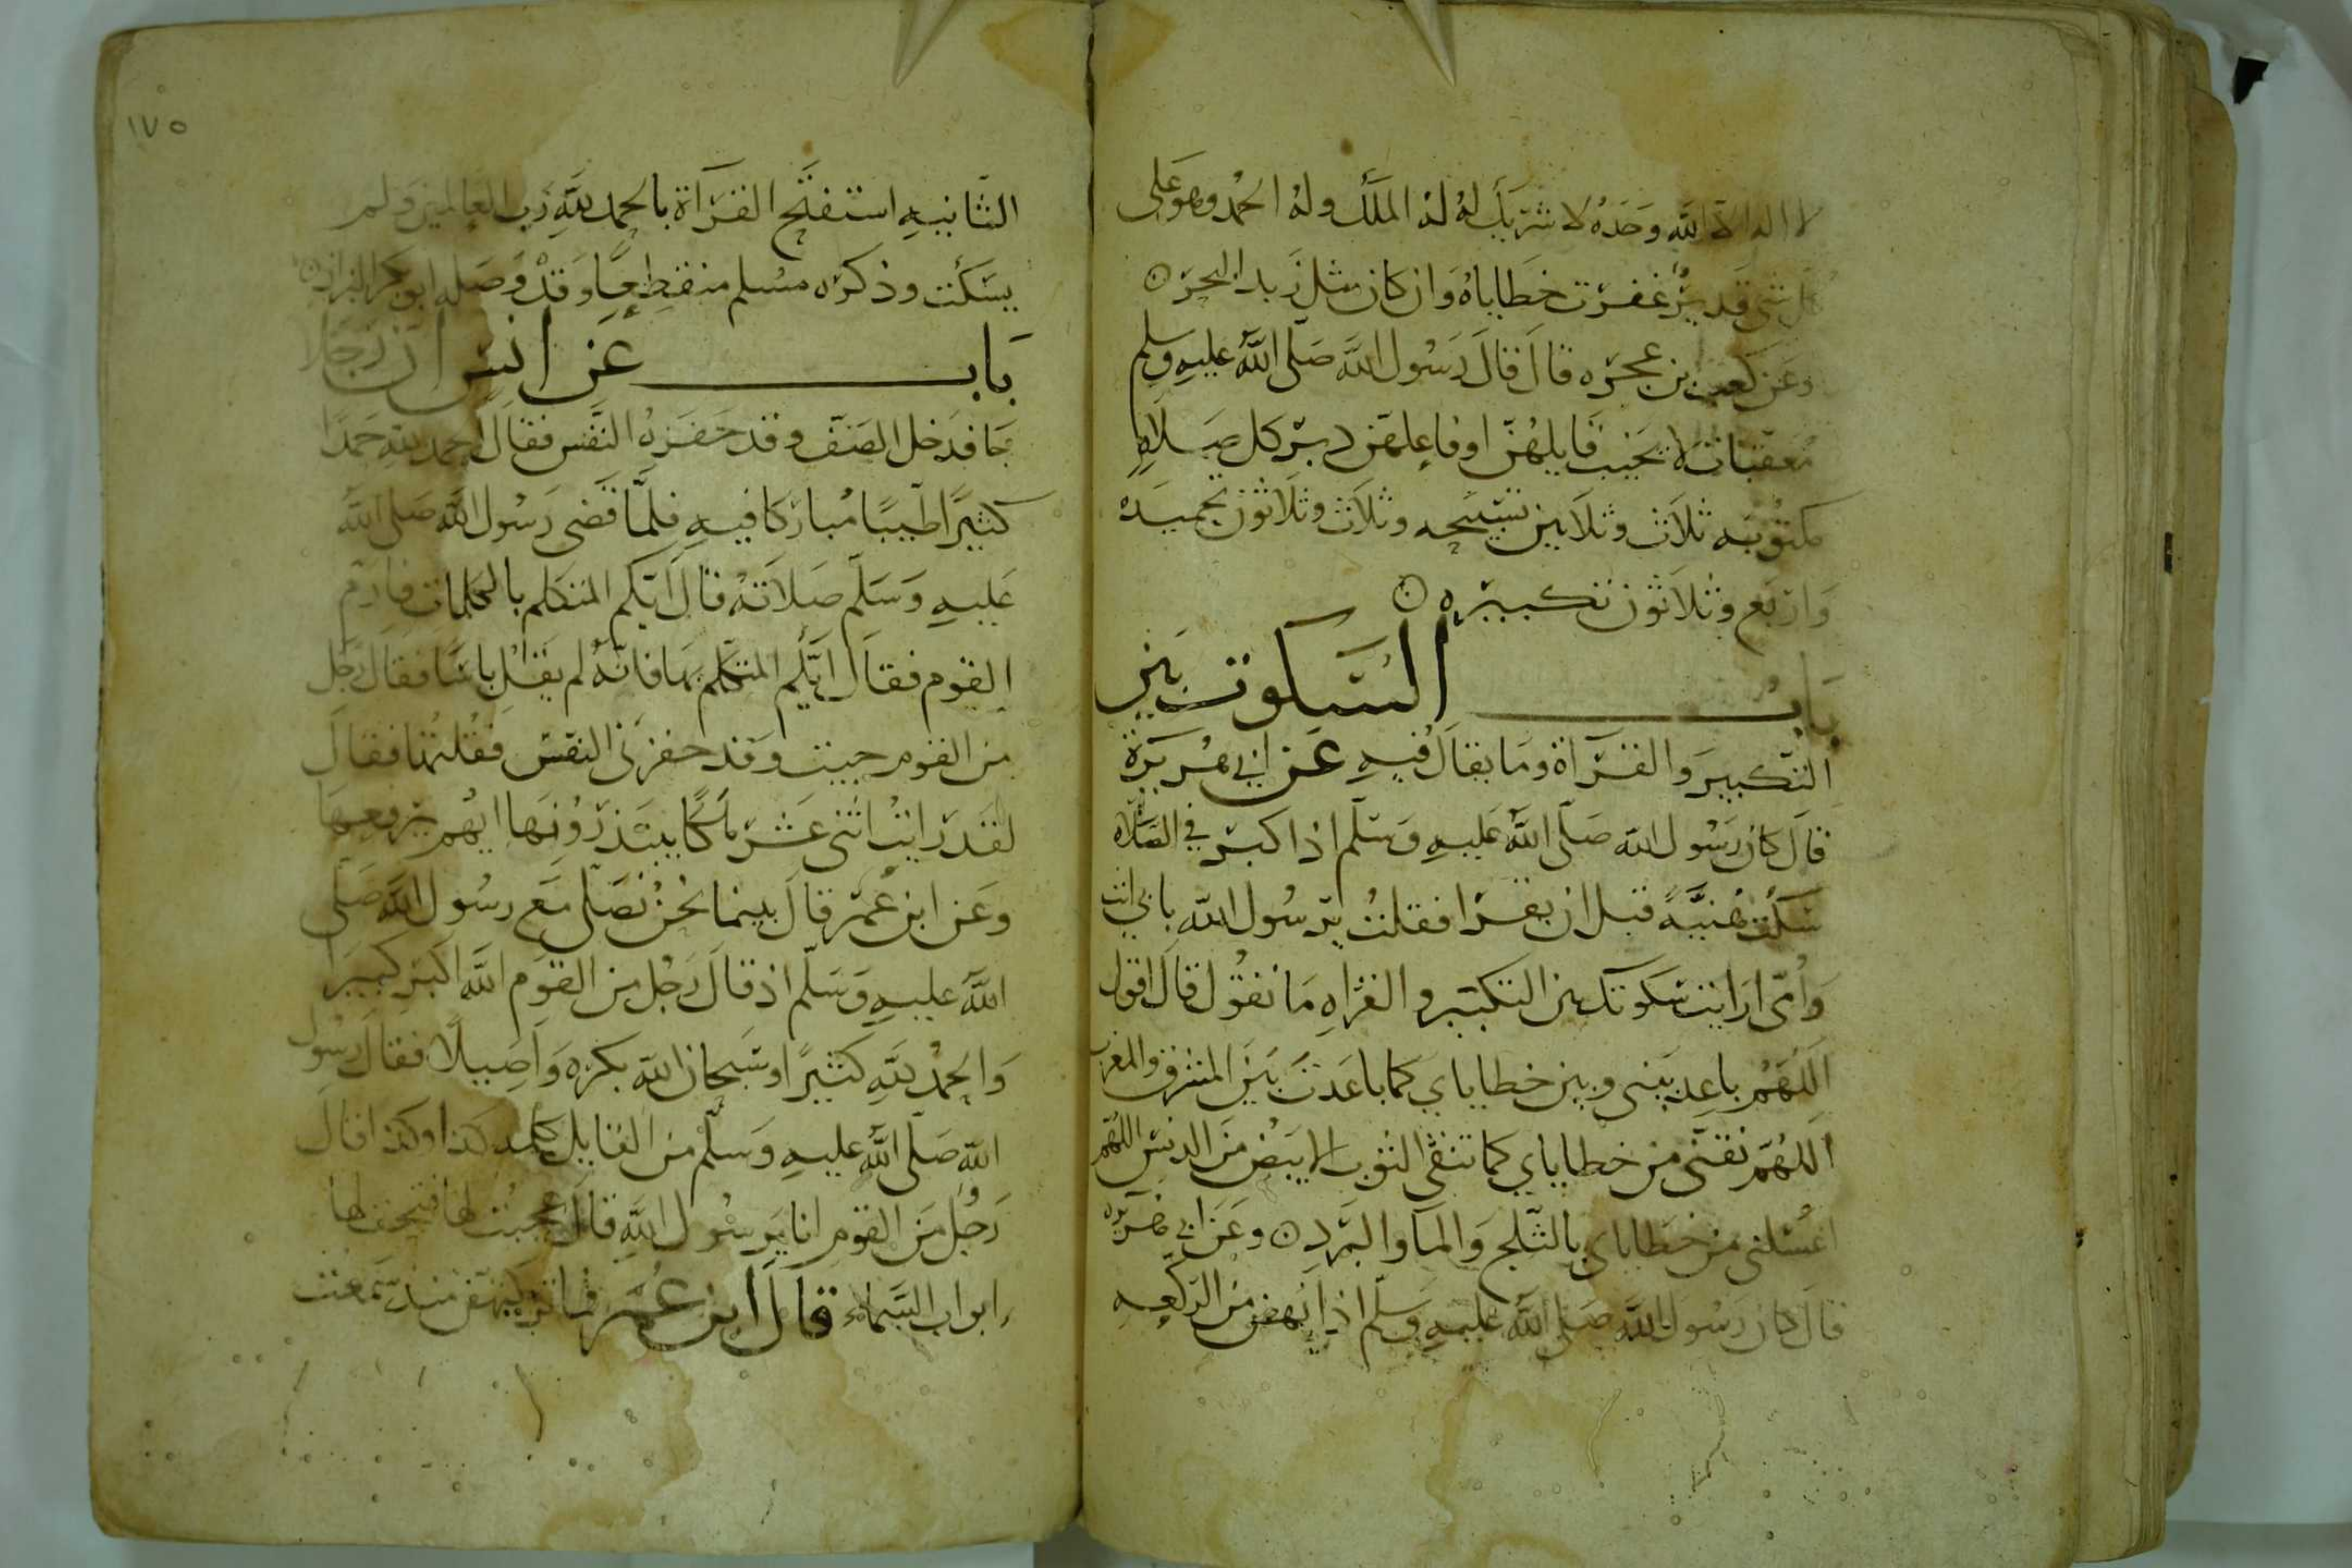 لا اله الا الله وحده لا شريك له له الملك وله الحمد وهو على
كل شى قدير غفرت خطاياه وان كان مثل زبد البحر ن
وعن كعب بن عجره قال قال رسول الله صلى الله عليه وسلم
معقبات لا يخيب قايلهن او فاعلهن دبر كل صلاه
مكتوبه ثلاث وثلاثين تسبيحه وثلاث وثلاثون تحميده
واربع وثلاثون تكبيره ن
باب السكوت بين
التكبير والقرآة وما يقال فيه عن ابي هريرة
قال كان رسول الله صلى الله عليه وسلم اذا كبر في الصلاه
سكت هنيّة قبل ان يقرا فقلت يرسول الله بابي انت
وأمى ارايت سكوتك بين التكبير والقراه ما تقول قال اقول
اللهم باعد بينى وبين خطاياي كما باعدت بين المشرق والمغرب
اللهم نقنى من خطاياي كما تنقى الثوب الابيض من الدنس اللهم
اغسلنى من خطاياي بالثلج والمآ والبرد ن وعن ابي هريره
قال كان رسول الله صلى الله عليه وسلم اذا نهض من الركعه
١٧٥
الثانيه استفتح القرآة بالحمد لله رب العالمين ولم
يسكت وذكره مسلم منقطعا وقد وصله ابو بكر البزار ن
باب عن انس ان رجلا
جا فدخل الصف وقد حفزه النفس فقال الحمد لله حمدا
كثيرا طيبا مباركا فيه فلما قضى رسول الله صلى الله
عليه وسلم صلاته قال ايكم المتكلم بالكلمات فارم
القوم فقال ايكم المتكلم بها فانه لم يقل باسا فقال رجل
من القوم جيت وقد حفزنى النفس فقلتها فقال
لقد رايت اثنى عشر ملكا يبتدرونها ايهم يرفعها
وعن ابن عمر قال بينما نحن نصلى مع رسول الله صلى
الله عليه وسلم اذ قال رجل من القوم الله اكبر كبيرا
والحمد لله كثيرا وسبحان الله بكره واصيلا فقال رسول
الله صلى الله عليه وسلم من القايل كلمه كذا وكذا قال
رجل من القوم انا يرسول الله قال عجبت لها فتحت لها
ابواب السماء قال ابن عمر فما تركتهن منذ سمعت